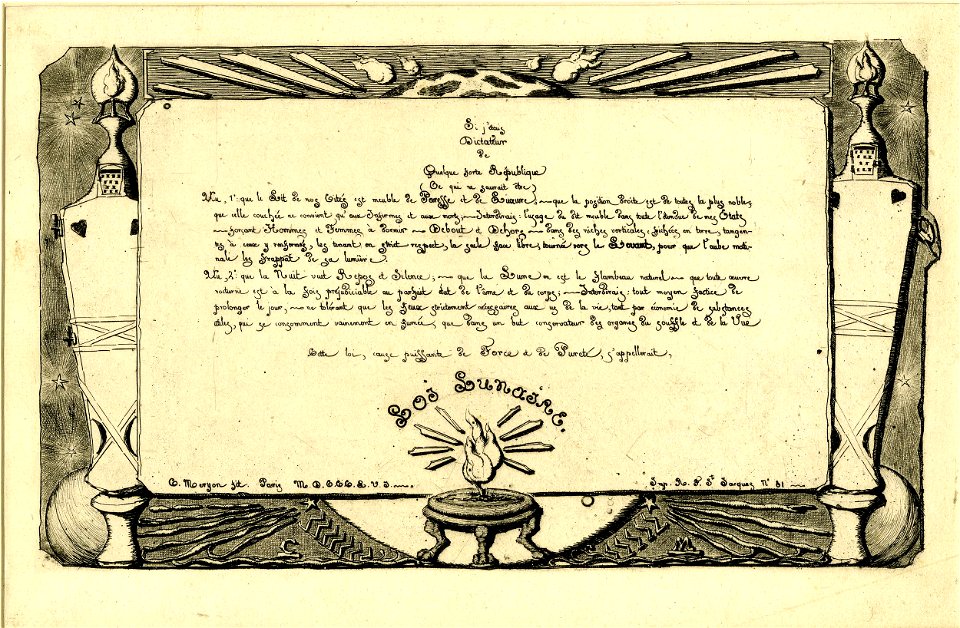 Si j'étais
Dictateur
de
Quelque sorte République
(Ce qui ne saurait être)
Vu, 1° que le Lit de nos Cités est meuble de Paresse et de Luxure; que la position droite est de toutes la plus noble,
que celle couchée ne convient qu'aux Infirmes et aux morts, Interdirais: l'usage du dit meuble dans toute l'étendue de mes Etats
forçant Hommes et Femmes à dormir Debout et Dehors, dans des niches verticales, fichées en terre,
y renfermés, les tenant en strict respect, la seule face libre, tournée vers le Levant, pour que l'aube mati-
nale les frappât de sa lumière.
Vu, 2° que la Nuit veut Repos et Silence; que la Lune en est le flambeau naturel que toute œuvre
nocturne est à la fois préjudiciable au parfait état de l'âme et du corps; Interdirais: tout moyen factice de
prolonger le jour, ne tolérant que les feux strictement nécessaires aux us de la vie, tant par économie de substances
utiles, qui se consomment vainement en fumée, que dans un but conservateur des organes du souffle et de la Vue
Cette loi, cause puissante de Force et de Pureté, s'appellerait,
LOI LUNAIRE.
C. Meryon fit. Paris
Imp. R. F. St Jacques N° 81
C M